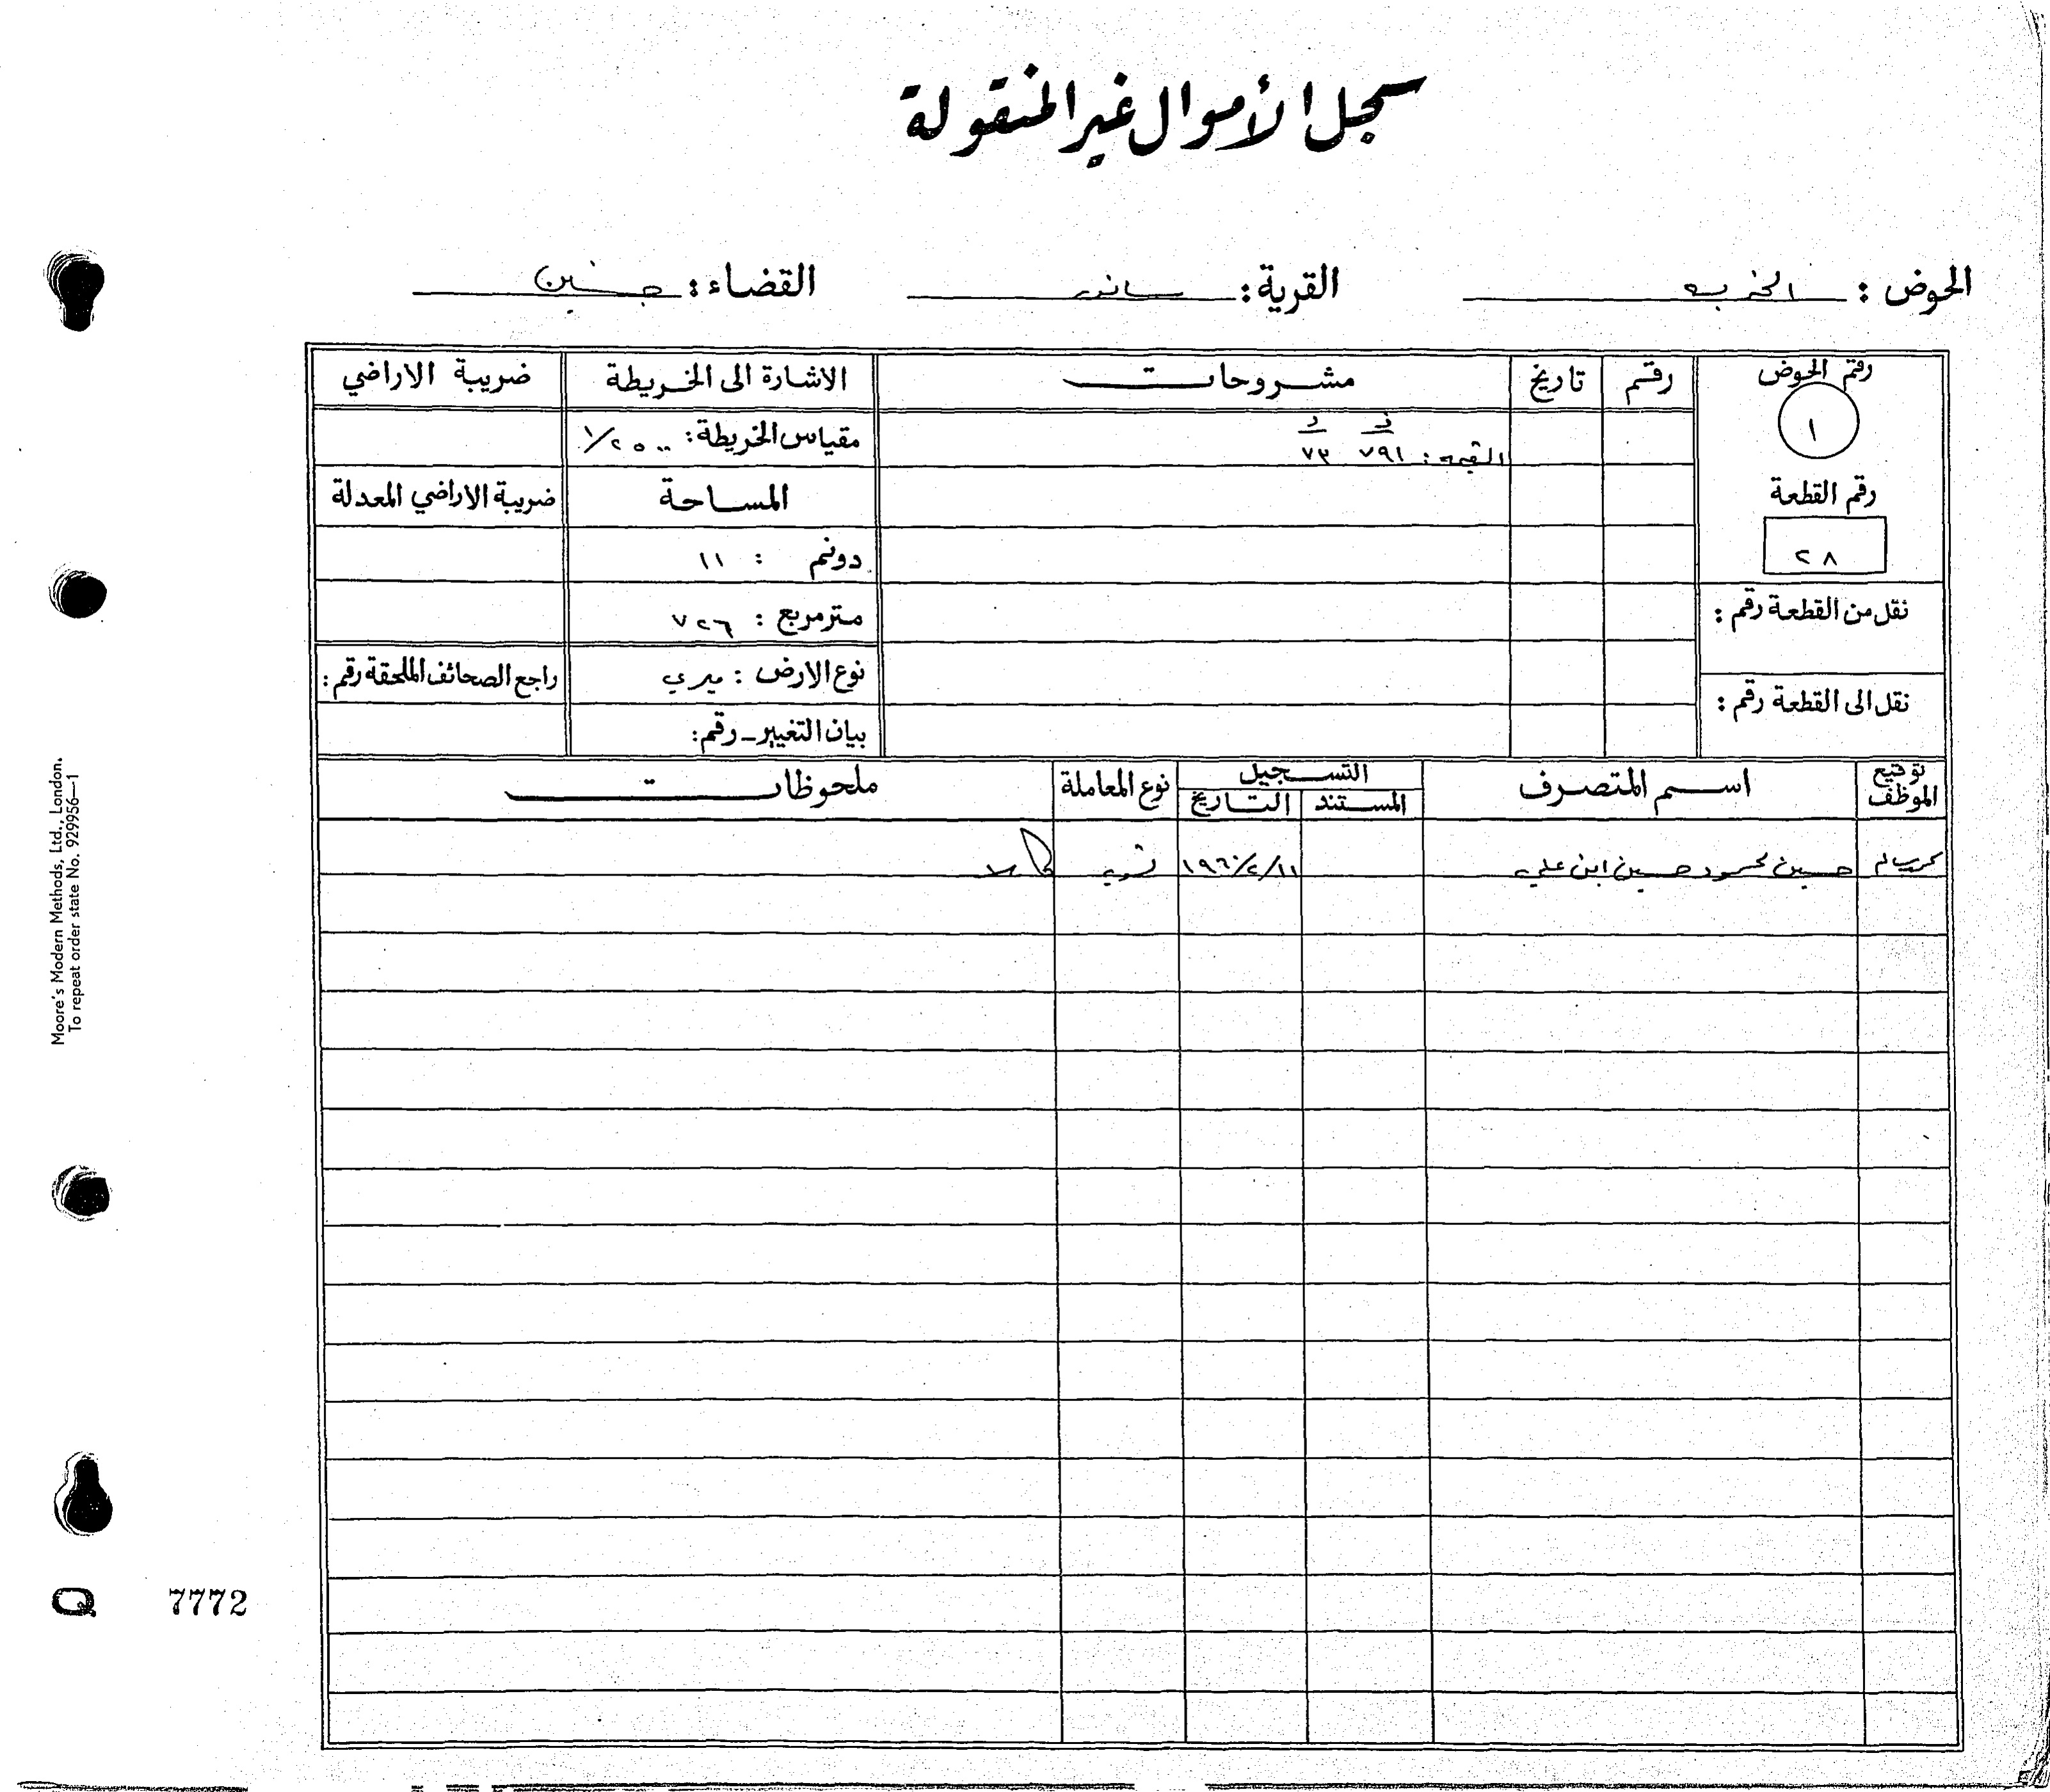 سجل الأموال غير المنقولة
الحوض : الخربه القرية : سانور القضاء : جنين
رقم الحوض رقم تاريخ مشروحات الاشارة الى الخريطة ضريبة الاراضي
١
ف د
القيمه : ٧٩١ ٧٣
مقياس الخريطة : ١/٢٥٠٠
رقم القطعة المساحة ضريبة الاراضي المعدلة
٢٨ دونم : ١١
نقل من القطعة رقم : متر مربع : ٧٢٦
نوع الارض : ميري راجع الصحائف الملحقة رقم :
نقل الى القطعة رقم : بيان التغيير - رقم :
توقيع الموظف اسم المتصرف التسجيل نوع المعاملة ملحوظات
المستند التاريخ
حسين محمود حسين ابن علي ١٩٦٠/٢/١١ تسويه كاملا
Moore's Modern Methods, Ltd., London.
To repeat order state No. 929956—1
Q 7772